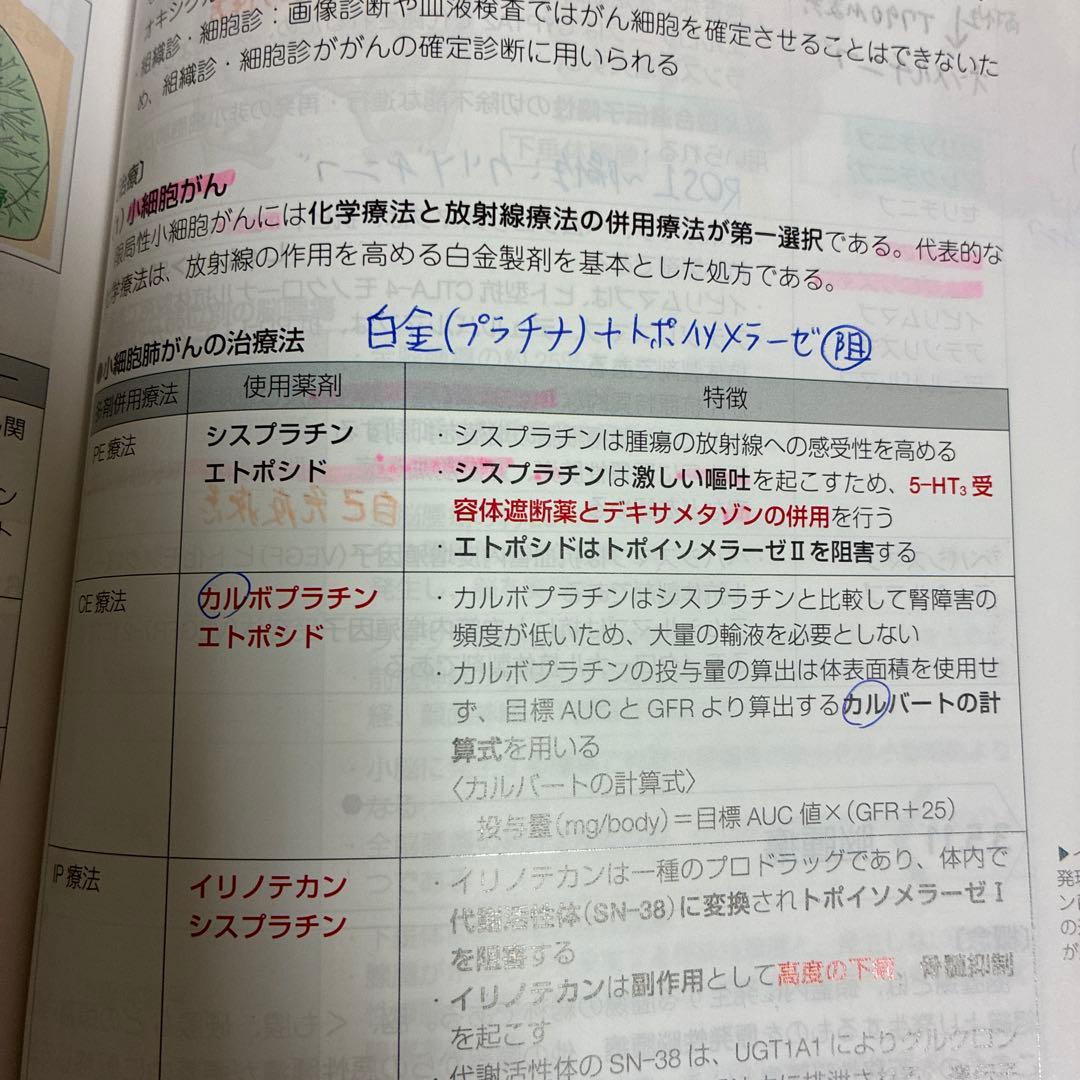 オキシ
・組織診・細胞診：画像診断や血液検査ではがん細胞を確定させることはできないた
め、組織診・細胞診ががんの確定診断に用いられる
治療〕
1) 小細胞がん
限局性小細胞がんには化学療法と放射線療法の併用療法が第一選択である。代表的な
化学療法は、放射線の作用を高める白金製剤を基本とした処方である。
白金(プラチナ)+トポイソメラーゼ阻
●小細胞肺がんの治療法
多剤併用療法
使用薬剤
特徴
PE療法
シスプラチン
エトポシド
・シスプラチンは腫瘍の放射線への感受性を高める
・シスプラチンは激しい嘔吐を起こすため、5-HT₃受
容体遮断薬とデキサメタゾンの併用を行う
・エトポシドはトポイソメラーゼⅡを阻害する
CE療法
カルボプラチン
エトポシド
・カルボプラチンはシスプラチンと比較して腎障害の
頻度が低いため、大量の輸液を必要としない
・カルボプラチンの投与量の算出は体表面積を使用せ
ず、目標AUCとGFRより算出するカルバートの計
算式を用いる
〈カルバートの計算式〉
投与量(mg/body)＝目標AUC値×(GFR＋25)
IP療法
イリノテカン
シスプラチン
・イリノテカンは一種のプロドラッグであり、体内で
代謝活性体(SN-38)に変換されトポイソメラーゼⅠ
を阻害する
・イリノテカンは副作用として高度の下痢、骨髄抑制
を起こす
・代謝活性体のSN-38は、UGT1A1によりグルクロン